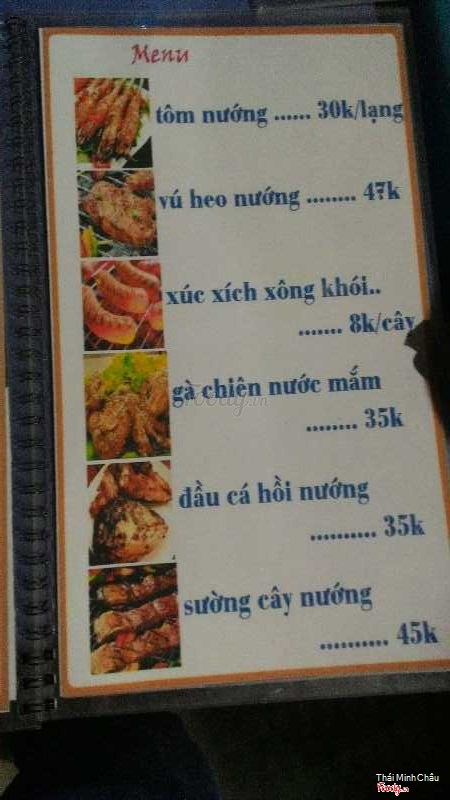 Menu
tôm nướng ...... 30k/lạng
vú heo nướng ........ 47k
xúc xích xông khói..
....... 8k/cây
gà chiên nước mắm
........ 35k
đầu cá hồi nướng
.......... 35k
sường cây nướng
.......... 45k
Thái Minh Châu
Foody.vn